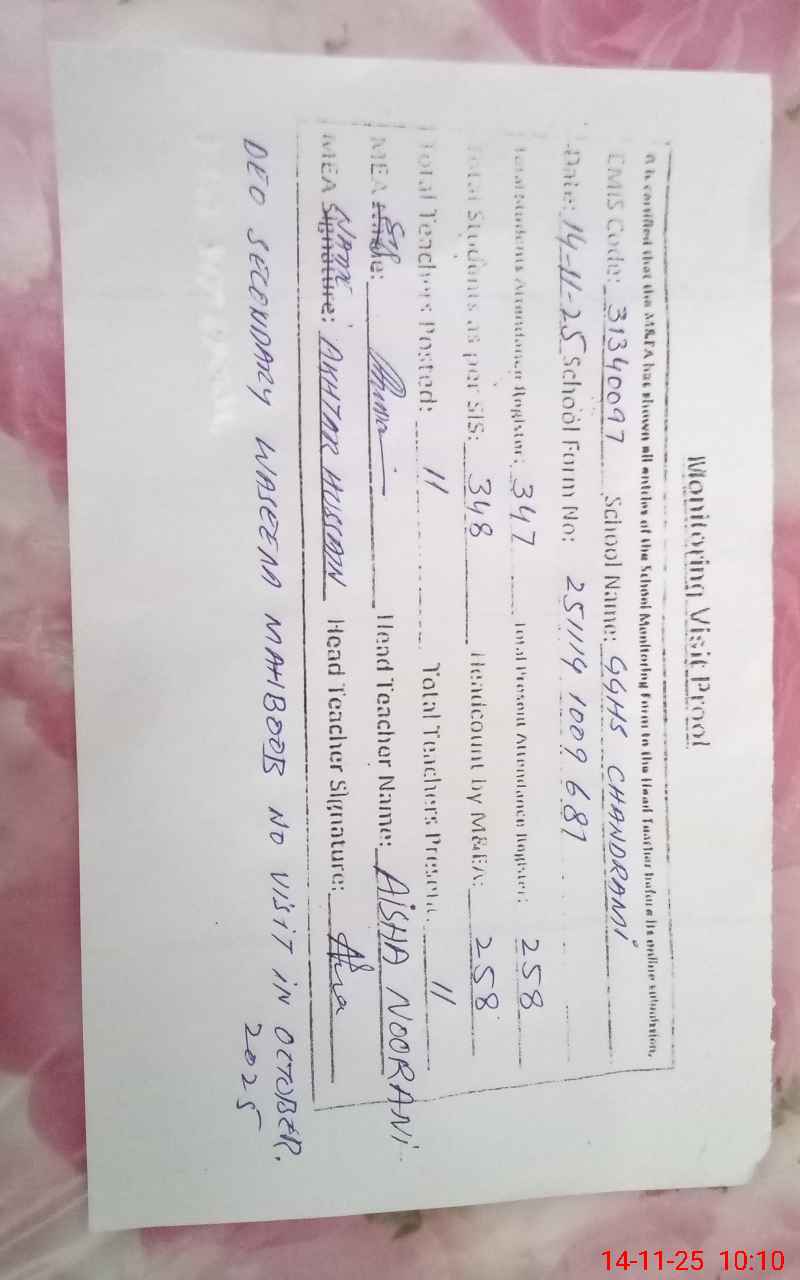 Monitoring Visit Proof
It is certified that the M&EA has shown all entries of the School Monitoring Form to the Head Teacher before its online submission.
EMIS Code: 31340097 School Name: GGHS CHANDRAMI
Date: 14-11-25 School Form No: 251114 1009 687
Total Students Attendance Register: 347 Total Present Attendance Register: 258
Total Students as per SIS: 348 Headcount by M&EA: 258
Total Teachers Posted: 11 Total Teachers Present: 11
MEA Name: Head Teacher Name: AISHA NOORANI
NAME
MEA Signature: AKHTAR HUSSAIN Head Teacher Signature:
DEO SECENDARY WASEEM MAHBOOB NO VISIT IN OCTOBER.
2025
14-11-25 10:10